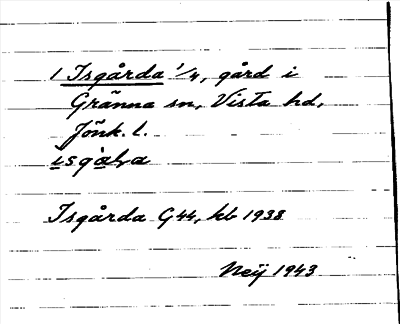 1 Isgårda 1/4, gård i
Gränna sn, Vista hd,
Jönk. l.
Isgårda G44, kb 1938
Neij 1943